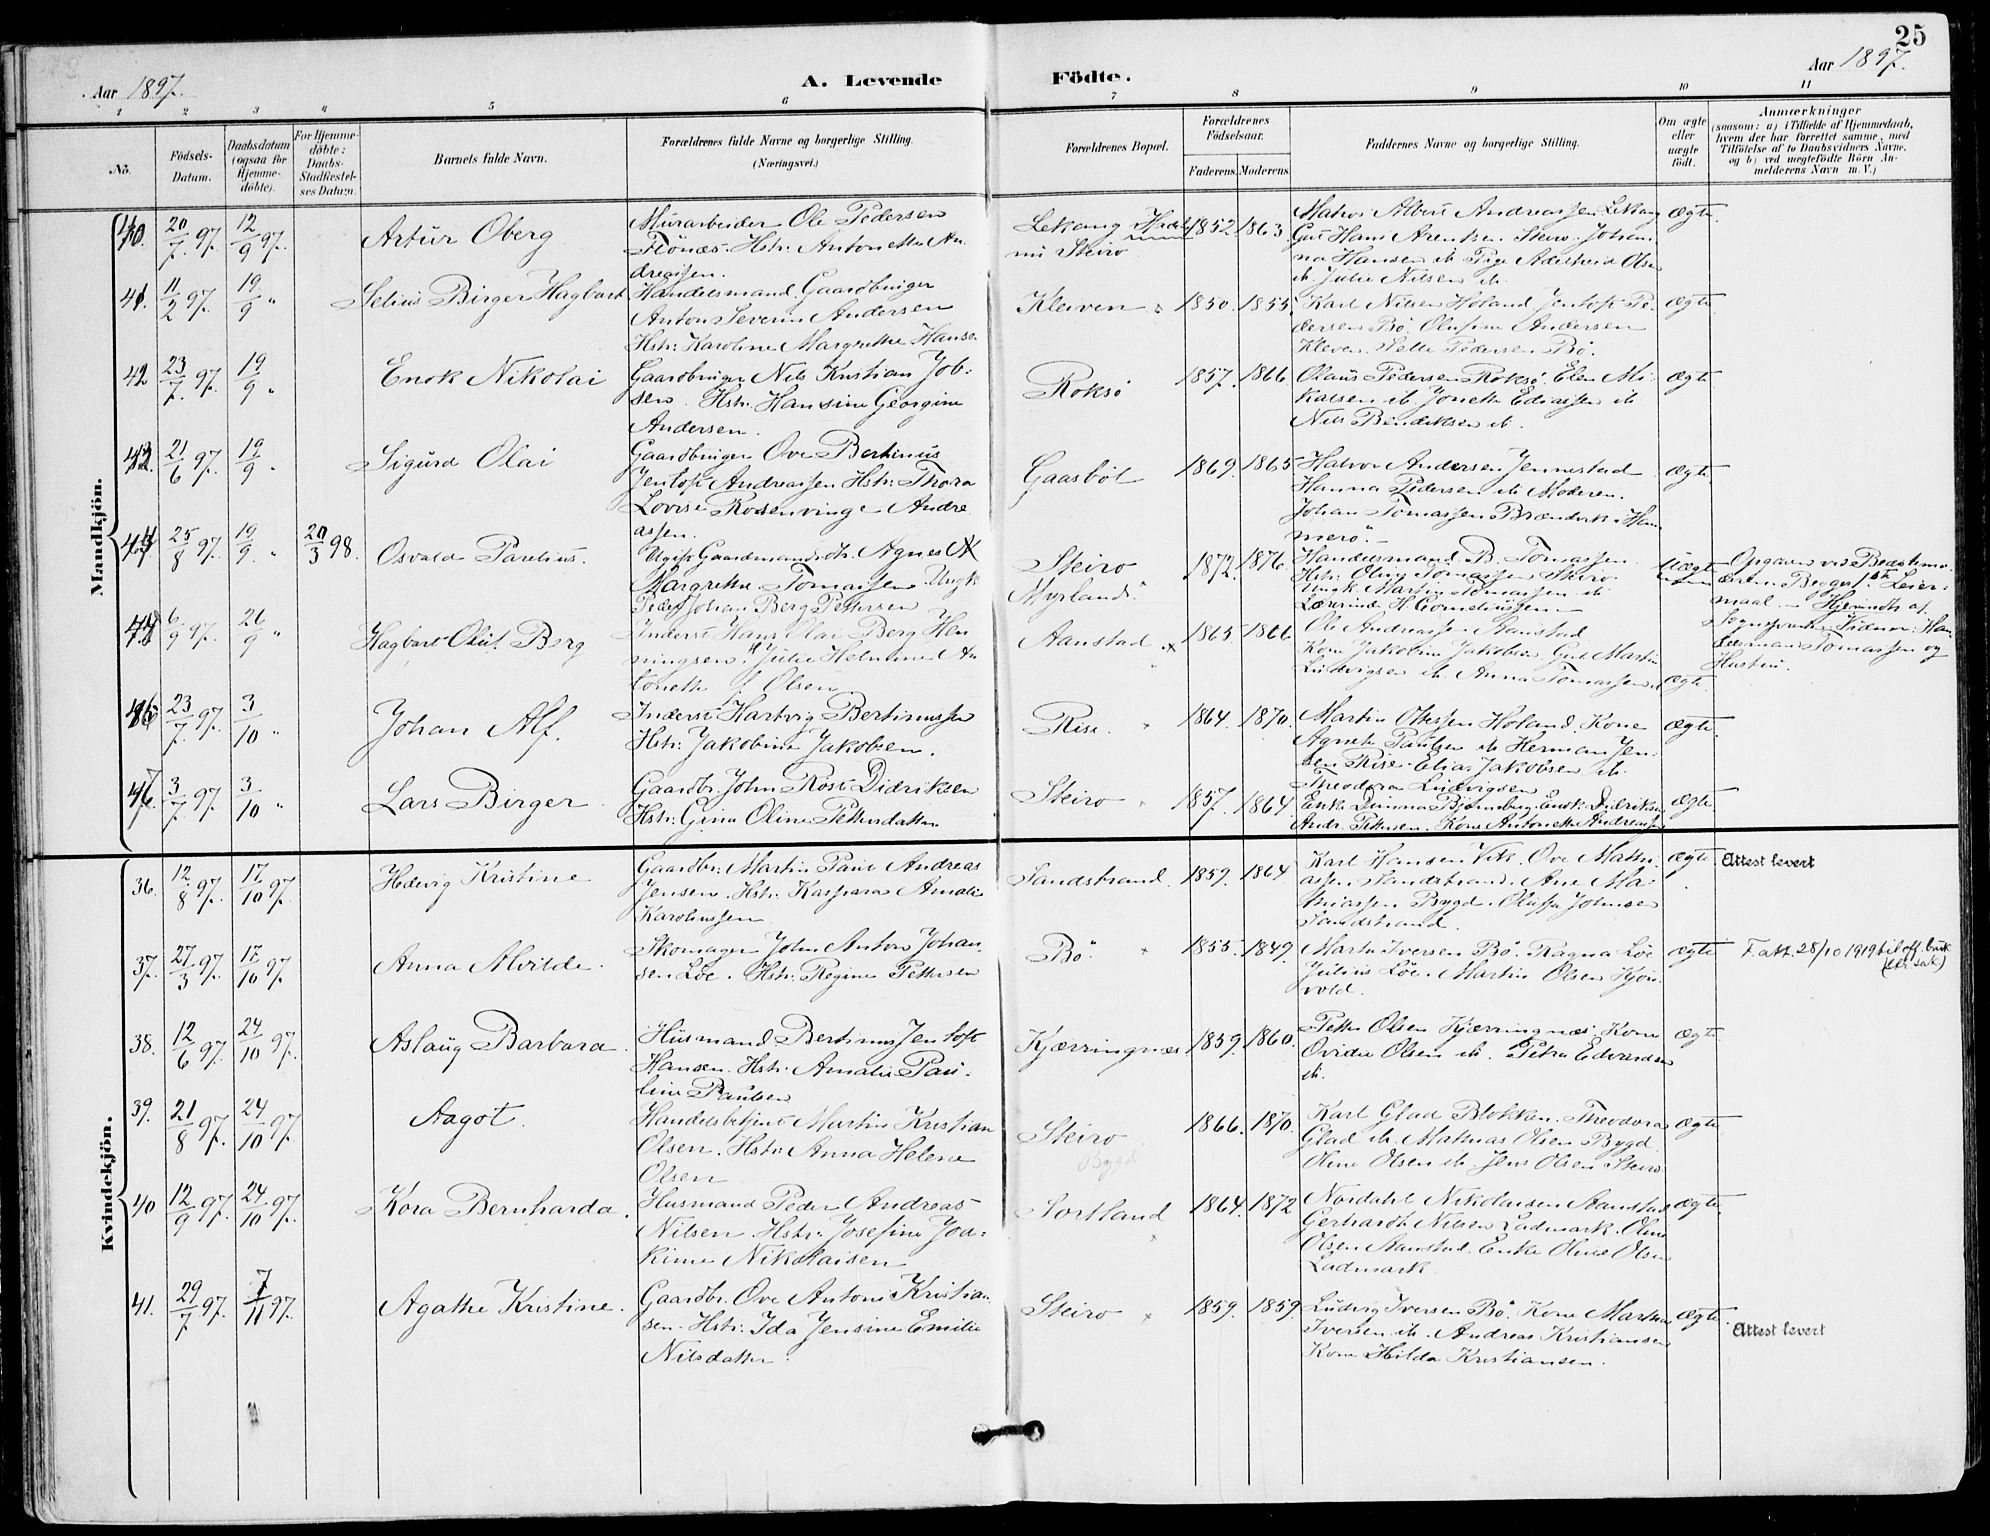 25
Aar 1897.
A. Levende
Födte.
Aar 1897.
1 2 3 4 5 6 7 8 9 10 11
No.
Födsels-
Datum.
Daabsdatum
(ogsaa for
Hjemme-
döbte).
For Hjemme-
döbte:
Daabs-
Stadfestel-
ses Datum.
Barnets fulde Navn.
Forældrenes fulde Navne og borgerlige Stilling.
(Næringsvei.)
Forældrenes Bopæl.
Forældrenes
Födselsaar.
Faderens.
Moderens.
Faddernes Navne og borgerlige Stilling.
Om ægte
eller
uægte
födt.
Anmærkninger
(saasom: a) i Tilfælde af Hjemmedaab,
hvem der har forrettet samme, med
Tilföielse af to Daabsvidners Navne,
og b) ved uægtefödte Börn An-
melderens Navn m. V.)
Mandkjön.
40. 20/7 97. 12/9 97. Artur Oberg
Murarbeider Ole Pedersen
Hstr. Antonette An-
dreassen.
Lekang
Steiro
1852 1863.
Matros Albert Andreassen Lekang
Hans Arentsen Steiro. Johan-
na Hansen ib. Pige Adelheid Olsen
ib. Julie Nilsen ib.
Ægte
41. 11/2 97. 19/9 " Selius Birger Hagbart
Handelsmand, Gaardbruger
Anton Severin Andersen
Hstr. Karoline Margrethe Hansen
Kleiven
1850. 1855.
Karl Nilsen Holand, Jentoft Pe-
dersen Bö. Andersen
Kleven. Pedersen Bö.
ægte
42 23/7 97. 19/9 " Enok Nikolai
Gaardbruger Nils Kristian Job-
sen. Hstr. Hansine Georgine
Andersen.
Roksö
1857. 1866.
Olaus Pedersen Roksö. Elen Mi-
kalsen ib. Jonette Ediassen ib.
Nils Bendiksen ib.
Ægte
43. 21/6 97. 19/9 " Sigurd Olai
Gaardbruger Ove Bertinus
Jentoft Andreassen Hstr. Thora
Lovise Rosenvinge Andre
assen.
Gaasböl
1869. 1865
Halvor Andersen Jennestad
Hanna Pedersen ib. Moderen.
Johan Tomassen Brændvik i Ham-
merö.
ægte
44 25/8 97. 19/9 " 20/3 98. Osvald Parelius.
Ugift Gaardmandsdtr. Agnes
Margrethe Tomassen. Ungk
Johan Berg Pettersen
Steiro
Myrland.
1872. 1876.
Handelsmand B. Tomassen.
Hstr. Oline Tomassen Steiro
Ungk. Martin Tomassen ib.
Lærerinde H. Corneliussen
Uægte
Opgaven ved Bedstemo-
deren. Begges 1ste Leier-
maal. Hjemmedb. af
Sognepræst Han-
delsmand Tomassen og
Hustru.
6/9 97. 26/9 " Hagbart Olut Berg
Inderst Hans Olai Berg Hen
ningsen. Julie Helmine An
tonette Olsen
Aanstad
1865 1866
Ole Andreassen Aanstad
Kone Jakobine Jakobsen. Gut Martin
Ludvigsen ib. Anna Tomassen ib
Ægte
46 23/7 97. 3/10 " Johan Alf.
Inderst Hartvig Bertinussen
Hstr. Jakobine Jakobsen.
Rise.
1864. 1870.
Martin Ottesen Holand. Kone
Agnete Paulsen ib. Herman Jen-
sen Rise. Elias Jakobsen ib.
Theodora Ludvigsen
Ægte.
47. 3/7 97. 3/10 " Lars Birger
Gaardbr. John Röst Didriksen
Hstr. Gina Oline Pettersdatter
Steiro
1857. 1864.
Enke Bjönnsborg. Enok Didriksen
Andr. Pettersen. Kone Antonette Andreassen
Ægte
Kvindekjön.
36. 12/8 97. 17/10 97. Hedvig Kristine
Gaardbr. Martin Paul Andreas
Jensen. Hstr. Kaspara Amalie
Karolussen
Sandstrand.
1859. 1864
Karl Hansen Vik. Ove Mathi-
assen Sandstrand. Ane Ma-
thiassen Bygd. Johnsen
Sandstrand.
Ægte
Attest levert
37. 27/3 97. 17/10 97. Anna Alvilde.
Skomager John Anton Johan-
sen Löe. Hstr. Regine Pettersen
Bö
1855. 1849.
Martin Iversen Bö. Ragna Löe
Julius Löe. Martin Olsen Kjön-
vold.
ægte
F. att. 28/10 1919 til off. bruk
38. 12/6 97. 24/10 97. Aslaug Barbara.
Husmand Bertinus Jentoft
Hansen. Hstr. Amalie Pau-
line Paulsen
Kjærringnæs
1859. 1860.
Petter Olsen Kjærringnæs. Kone
Ovidie Olsen ib. Petra Edvardsen
ib.
Ægte
39. 21/8 97. 24/10 97. Aagot.
Handelsbetjent Martin Kristian
Olsen. Hstr. Anna Helene
Olsen
Steiro
Bygd
1866. 1870.
Karl Glad Blokken. Theodora
Glad ib. Mathias Olsen Bygd
Oline Olsen ib. Jens Olsen Steiro
Ægte
40 12/9 97. 24/10 97. Kora Bernharda.
Husmand Peder Andreas
Nilsen. Hstr. Josefine Joa-
kime Nikolaisen
Sortland
1864. 1872
Nordahl Nikolaisen Aanstad
Gerhardt Nilsen Ladmark. Oline
Olsen Aanstad. Enke Oline Olsen
Ladmark.
Ægte
41. 29/7 97. 7/11 97. Agathe Kristine.
Gaardbr. Ove Antoni Kristian-
sen. Hstr. Ida Jensine Emilie
Nilsdatter.
Steiro
1859. 1859.
Ludvig Iversen Bö. Kone Martha
Iversen ib. Andreas Kristiansen
Kone Hilda Kristiansen.
Ægte.
Attest levert